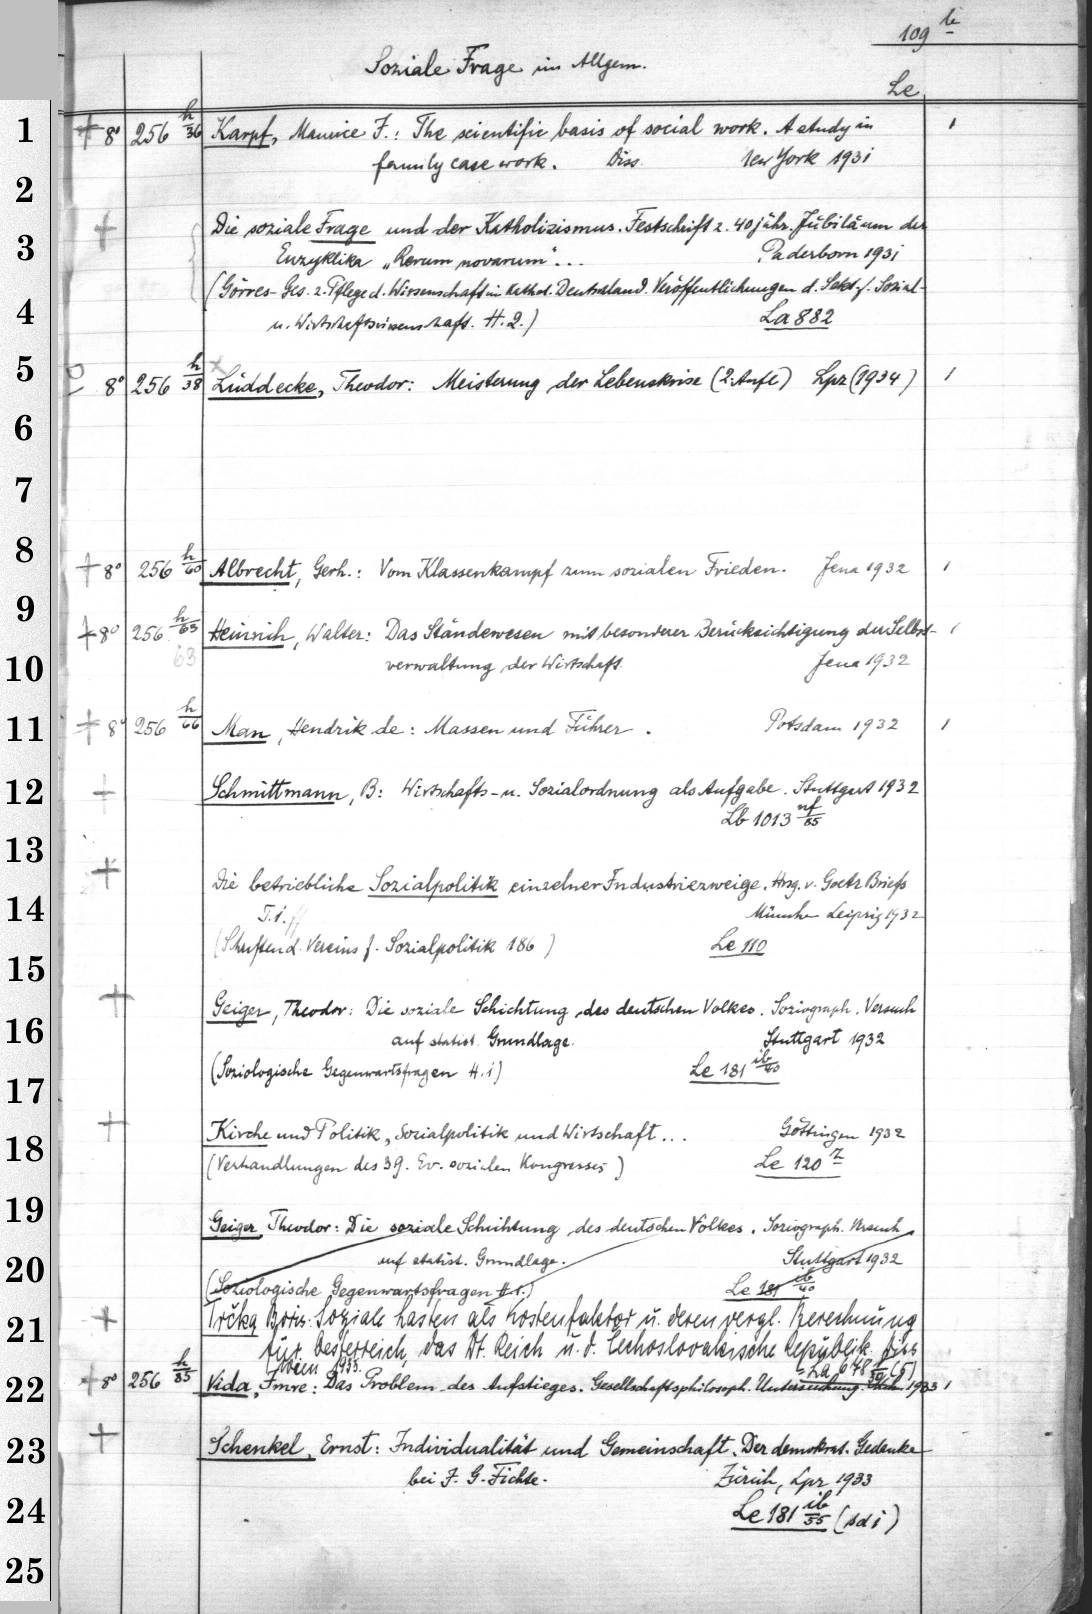 109 b
Soziale Frage im Allgem.
Le
1
+ 8° 256 h/36 Karpf, Maurice F.: The scientific basis of social work. A study in 1
family case work. Diss. New York 1931
2
+ Die soziale Frage und der Katholizismus. Festschrift z. 40jähr. Jubiläum der
3
Enzyklika „Rerum novarum“... Paderborn 1931
(Görres-Ges. z. Pflege d. Wissenschaft im kathol. Deutschland. Veröffentlichungen d. Sekt. f. Sozial-
4
u. Wirtschaftswissenschaft. H. 2.) La 882
5
8° 256 h/38 Lüddecke, Theodor: Meisterung der Lebenskrise (2. Aufl.) Lpz (1934) 1
6
7
8
+ 8° 256 h/60 Albrecht, Gerh.: Vom Klassenkampf zum sozialen Frieden. Jena 1932 1
9
+ 8° 256 h/63 Heinrich, Walter: Das Ständewesen mit besonderer Berücksichtigung der Selbst- 1
63
10
verwaltung der Wirtschaft. Jena 1932
11
+ 8° 256 h/66 Man, Hendrik de: Massen und Führer. Potsdam 1932 1
12
+ Schmittmann, B: Wirtschafts- u. Sozialordnung als Aufgabe. Stuttgart 1932
Lb 1013 nf/85
13
+ Die betriebliche Sozialpolitik einzelner Industriezweige. Hrsg. v. Goetz Briefs
14
T. 1. ff München Leipzig 1932
(Schriften d. Vereins f. Sozialpolitik 186) Le 110
15
+ Geiger, Theodor: Die soziale Schichtung des deutschen Volkes. Soziograph. Versuch
16
auf statist. Grundlage. Stuttgart 1932
(Soziologische Gegenwartsfragen H. 1) Le 181 ib/40
17
+ Kirche und Politik, Sozialpolitik und Wirtschaft... Göttingen 1932
18
(Verhandlungen des 39. Ev. sozialen Kongresses) Le 120 r
19
Geiger, Theodor: Die soziale Schichtung des deutschen Volkes. Soziograph. Versuch
20
auf statist. Grundlage. Stuttgart 1932
(Soziologische Gegenwartsfragen H. 1.) Le 181 ib/40
+ Trčka Boris. Soziale Lasten als Kostenfaktor u. deren vergl. Berechnung
21
für Oesterreich, das Dt. Reich u. d. Čechoslovakische Republik. Diss
Wien 1933. La 648 (5)
22
+ 8° 256 h/85 Vida, Imre: Das Problem des Aufstieges. Gesellschaftsphilosoph. Untersuchung. 1933 1
23
+ Schenkel, Ernst: Individualität und Gemeinschaft. Der demokrat. Gedanke
bei J. G. Fichte. Zürich, Lpz 1933
24
Le 181 ib/55 (sdi)
25